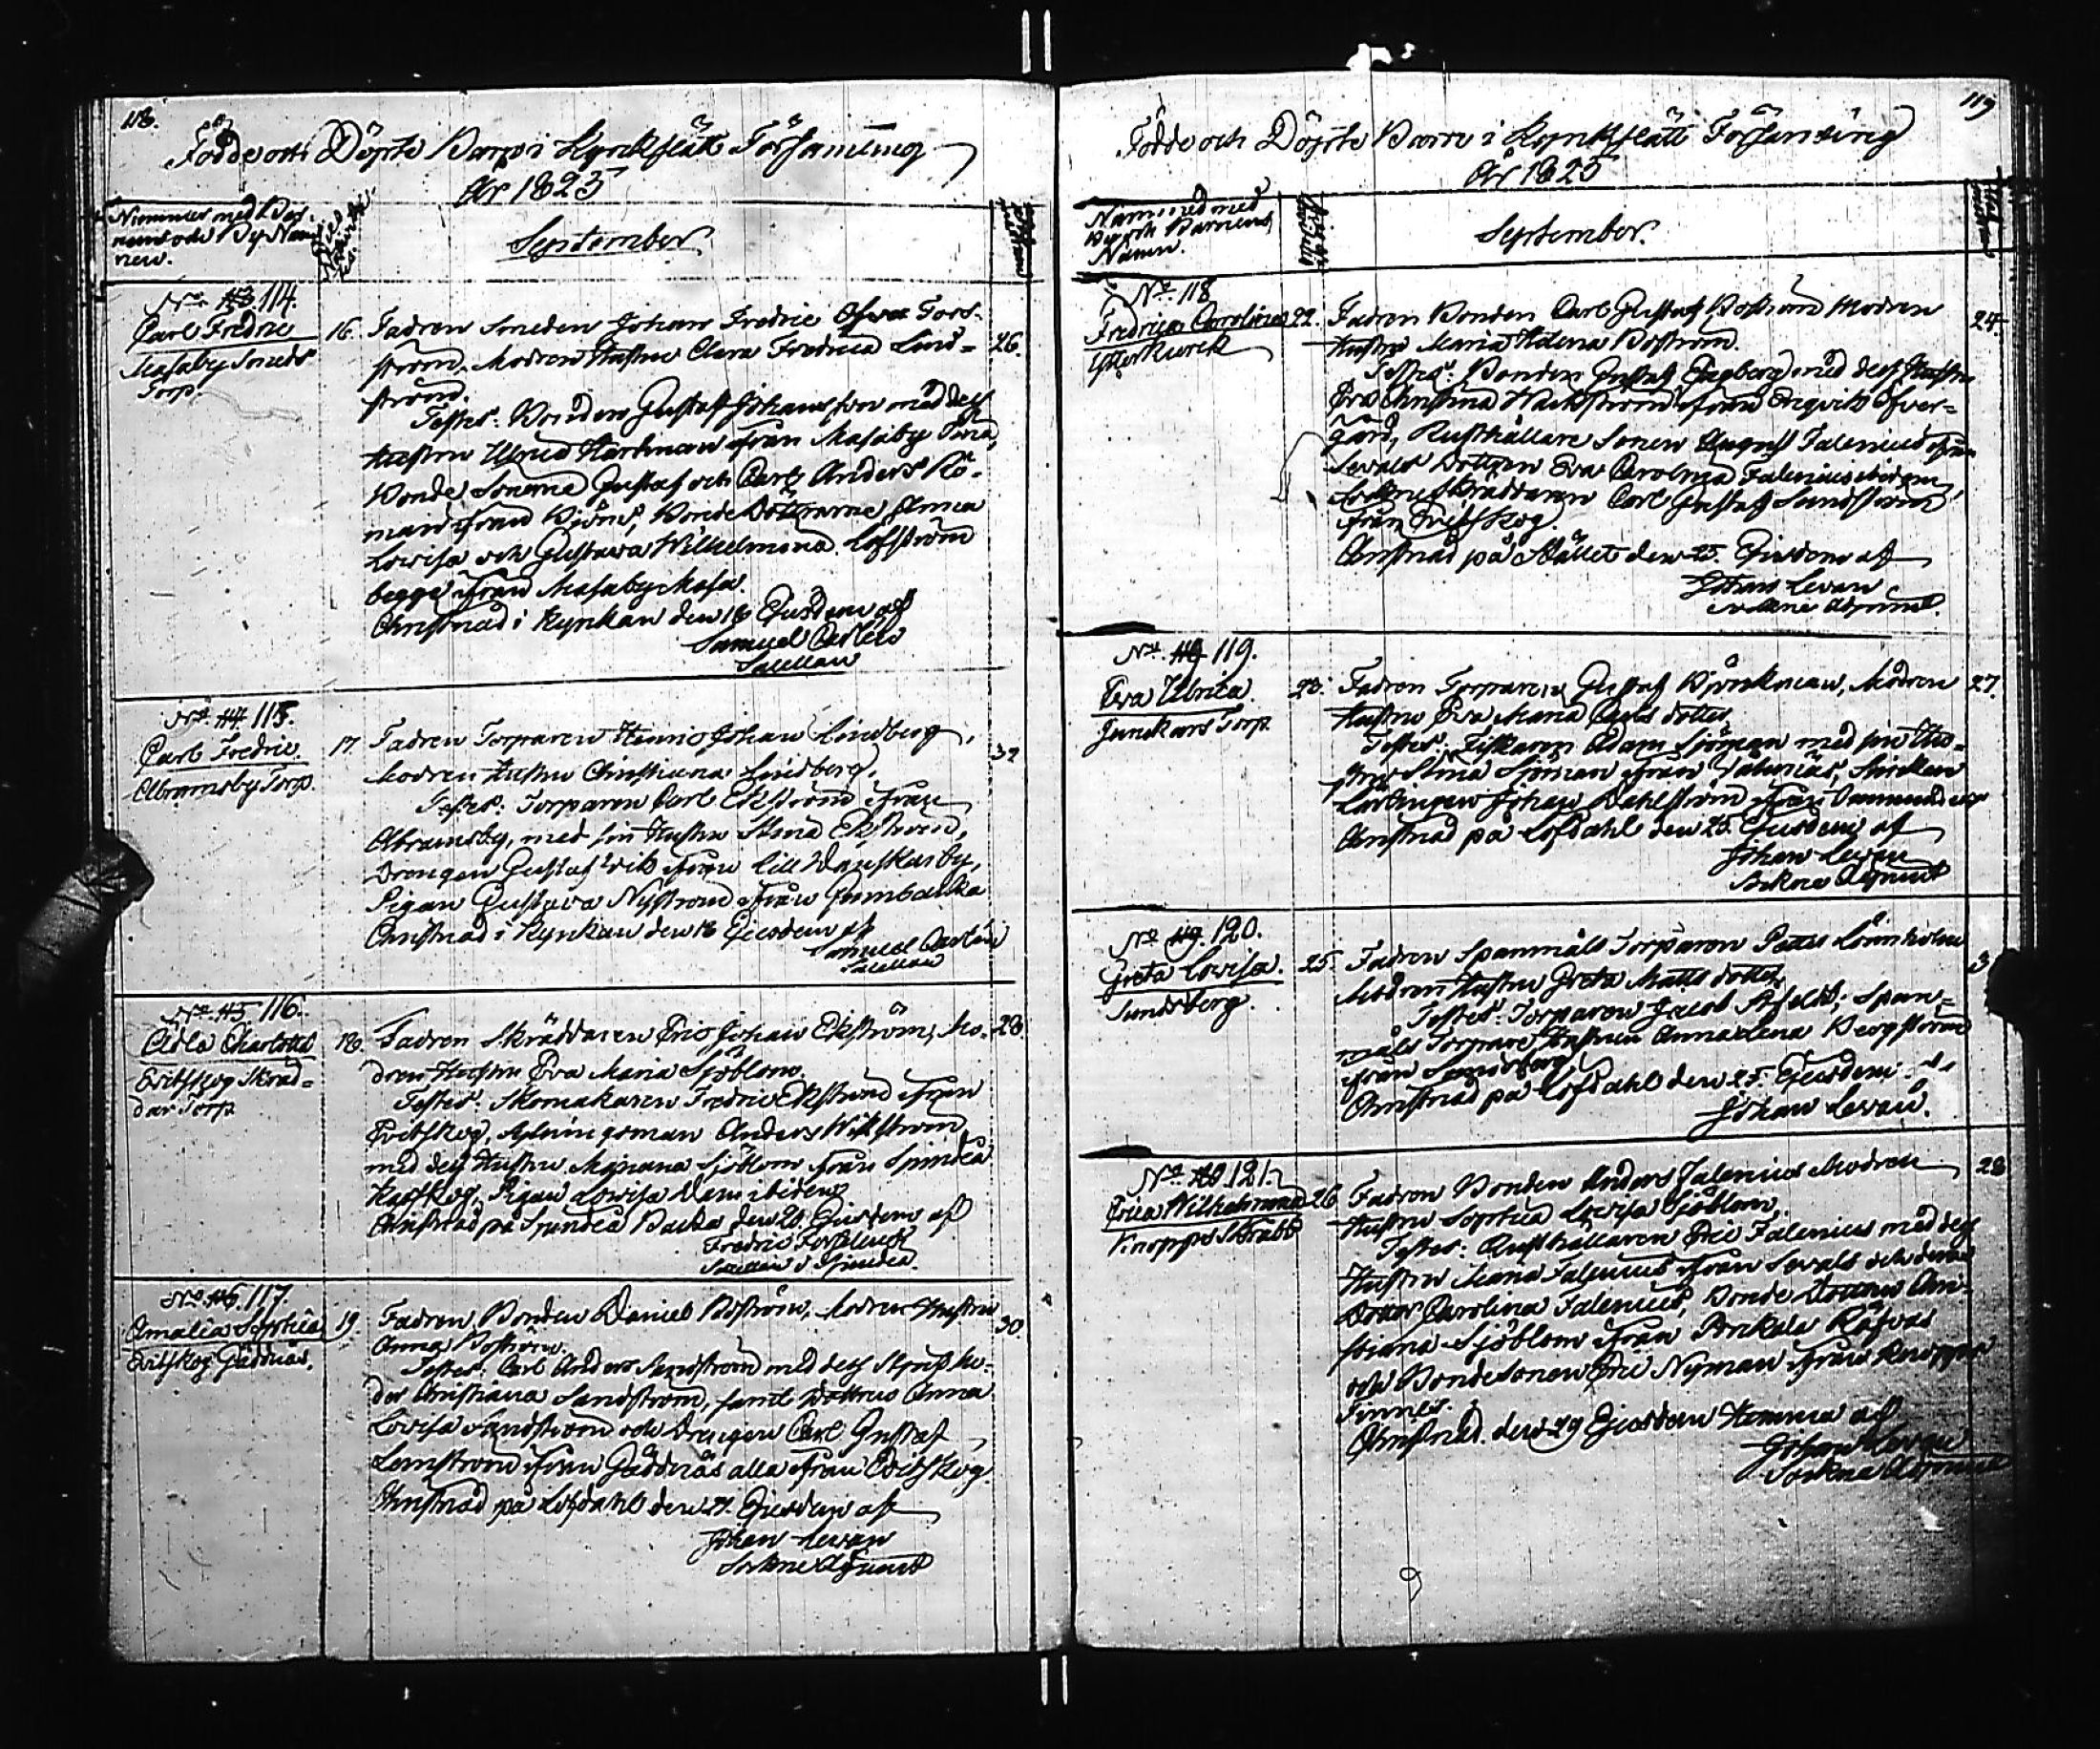 118.
Födde och Döpte Barn i Kyrkslätt Församling
År 1825
Nummer med Bar-
nens och By Nam-
nen.
September
No. 113. 114.
Carl Fredric
Masaby Smeds
Torp.
16.
Fadren Smeden Johan Fredric Fors-
ström, Modren Hustru Clara Fredrica Lind-
ström.
26.
Testes: Bonden Gustaf Johansson med dess
Hustru Ulrica Hartman från Masaby
Bonde Sönerne Gustaf och Carl Anders Rö-
man från Böhrs, Bonde Döttrarne Anna
Lovisa och Gustava Wilhelmina Löfström
begge från Masaby Masa.
Christnad i Kyrkan den 16 Ejusdem af
Samuel Carlen
Sacellan
No. 114 115.
Carl Fredric
Abramsby Torp.
17.
Fadren Torparen Henric Johan Lindberg,
Modren Hustru Christiana Lindberg.
32
Testes: Torparen Carl Ekström från
Abramsby, med sin Hustru Stina Ekström,
Drengen Gustaf från Lill Danskarby,
Pigan Gustava Nyström från Gumbacka
Christnad i Kyrkan den 18 Ejusdem af
Samuel Carlen
Sacellan
No. 115 116.
Adla Charlotta
Evitskog Skräd-
dar Torp
18.
Fadren Skräddaren Eric Johan Ekström, Mo-
dren Hustru Eva Maria Sjöblom.
28.
Testes: Skomakaren Fredric Ekstrand från
Evitskog, Anders Wikström
med dess Hustru Mariana Sjöblom från Sjundeå
Pigan Lovisa ibidem
Christnad på Sjundeå Backa den 20. Ejusdem af
Fredric
Sacellan i Sjundeå.
No. 116. 117.
Amalia Sophia
Evitskog Gäddnäs.
19.
Fadren Bonden Daniel Boström, Modren Hustru
Anna Boström.
30
Testes: Carl Anders Sandström med dess Mo-
der Christiana Sandström, samt Dottren Anna
Lovisa Sandström och Drengen Carl Gustaf
Lemström från Gäddnäs alla från Evitskog.
Christnad på Lofdahl den 21. Ejusdem af
Johan Levan
Sockne Adjunct
119
Födde och Döpte Barn i Kyrkslätt Församling
År 1825
med
By och Barnens
Namn.
September.
No. 118
Fredrica Carolina
Ytterkurck
22.
Fadren Bonden Carl Gustaf Boström Modren
Hustru Maria Helena Boström.
24
Testes: Bonden Gustaf Engberg med dess Hustru
Eva Christina Wackström från Engvik Öfver-
gård, Rusthållare Sonen August Falenius från
Sevals Dottren Eva Carolina Falenius ibidem,
Skräddaren Carl Gustaf Sundström
från Evitskog.
Christnad på Stället den 25. Ejusdem af
Johan Levan
Sockne Adjunct.
No. 119.
Eva Ulrica
Junckars Torp
23.
Fadren Torparen Gustaf Björkman, Modren
Hustru Eva Maria Carls dotter
27.
Testes: Fiskaren Adam Sjöman med sin Hu-
stru Stina Sjöman från
Lärlingen Johan Dahlström från
Christnad på Lofdahl den 25. Ejusdem af
Johan Levan
Sockne Adjunct
No. 119. 120.
Greta Lovisa.
Sundsberg.
25.
Fadren Spanmåls Torparen Petter Lönnholm
Modren Hustru Greta Matts dotter
3
Testes: Torparen Jacob Span-
måls Torpare Hustrun Anna Lena Bergström
från Sundsberg
Christnad på Lofdahl den 25. Ejusdem af
Johan Levan.
No. 121.
Erica Wilhelmina
Knapps Skrabb
26
Fadren Bonden Anders Falenius Modren
Hustru Sophia Lovisa Sjöblom.
28
Testes: Rusthållaren Eric Falenius med dess
Hustru Maria Falenius från Sevals och deras
Dotter Carolina Falenius, Bonde Dottren Chri-
stiana Sjöblom från Porkala Räfvas
och Bondesonen Eric Nyman från
Finnes.
Christnad den 29 Ejusdem Hemma af
Johan Levan
Sockne Adjunct